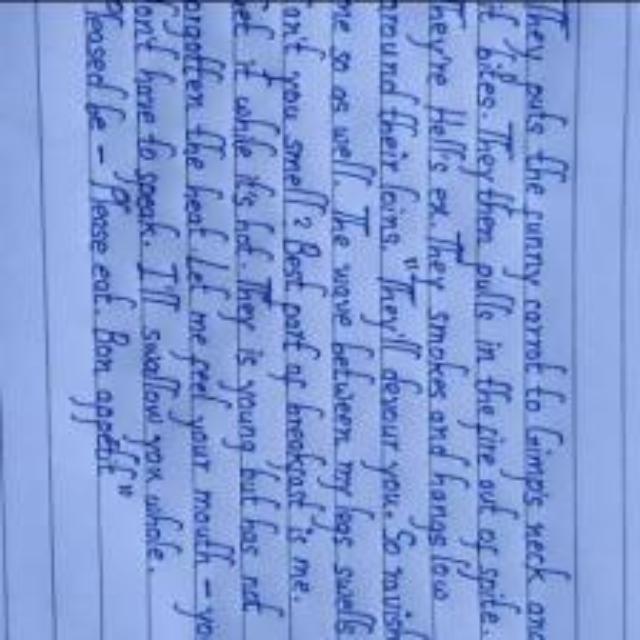 They puts the runny carrot to Gimp's neck and
it bites. They then pulls in the fire out of spite.
They're Hell's ex. They smokes and hangs low
around their loins. "They'll devour you. So
me so as well. The wave between my legs swells
can't you smell? Best part of breakfast is me.
Eat it while it's hot. They is young but has not
forgotten the heat. Let me feel your mouth - yo
don't have to speak. I'll swallow you whole.
Please - Please eat. Bon appétit"